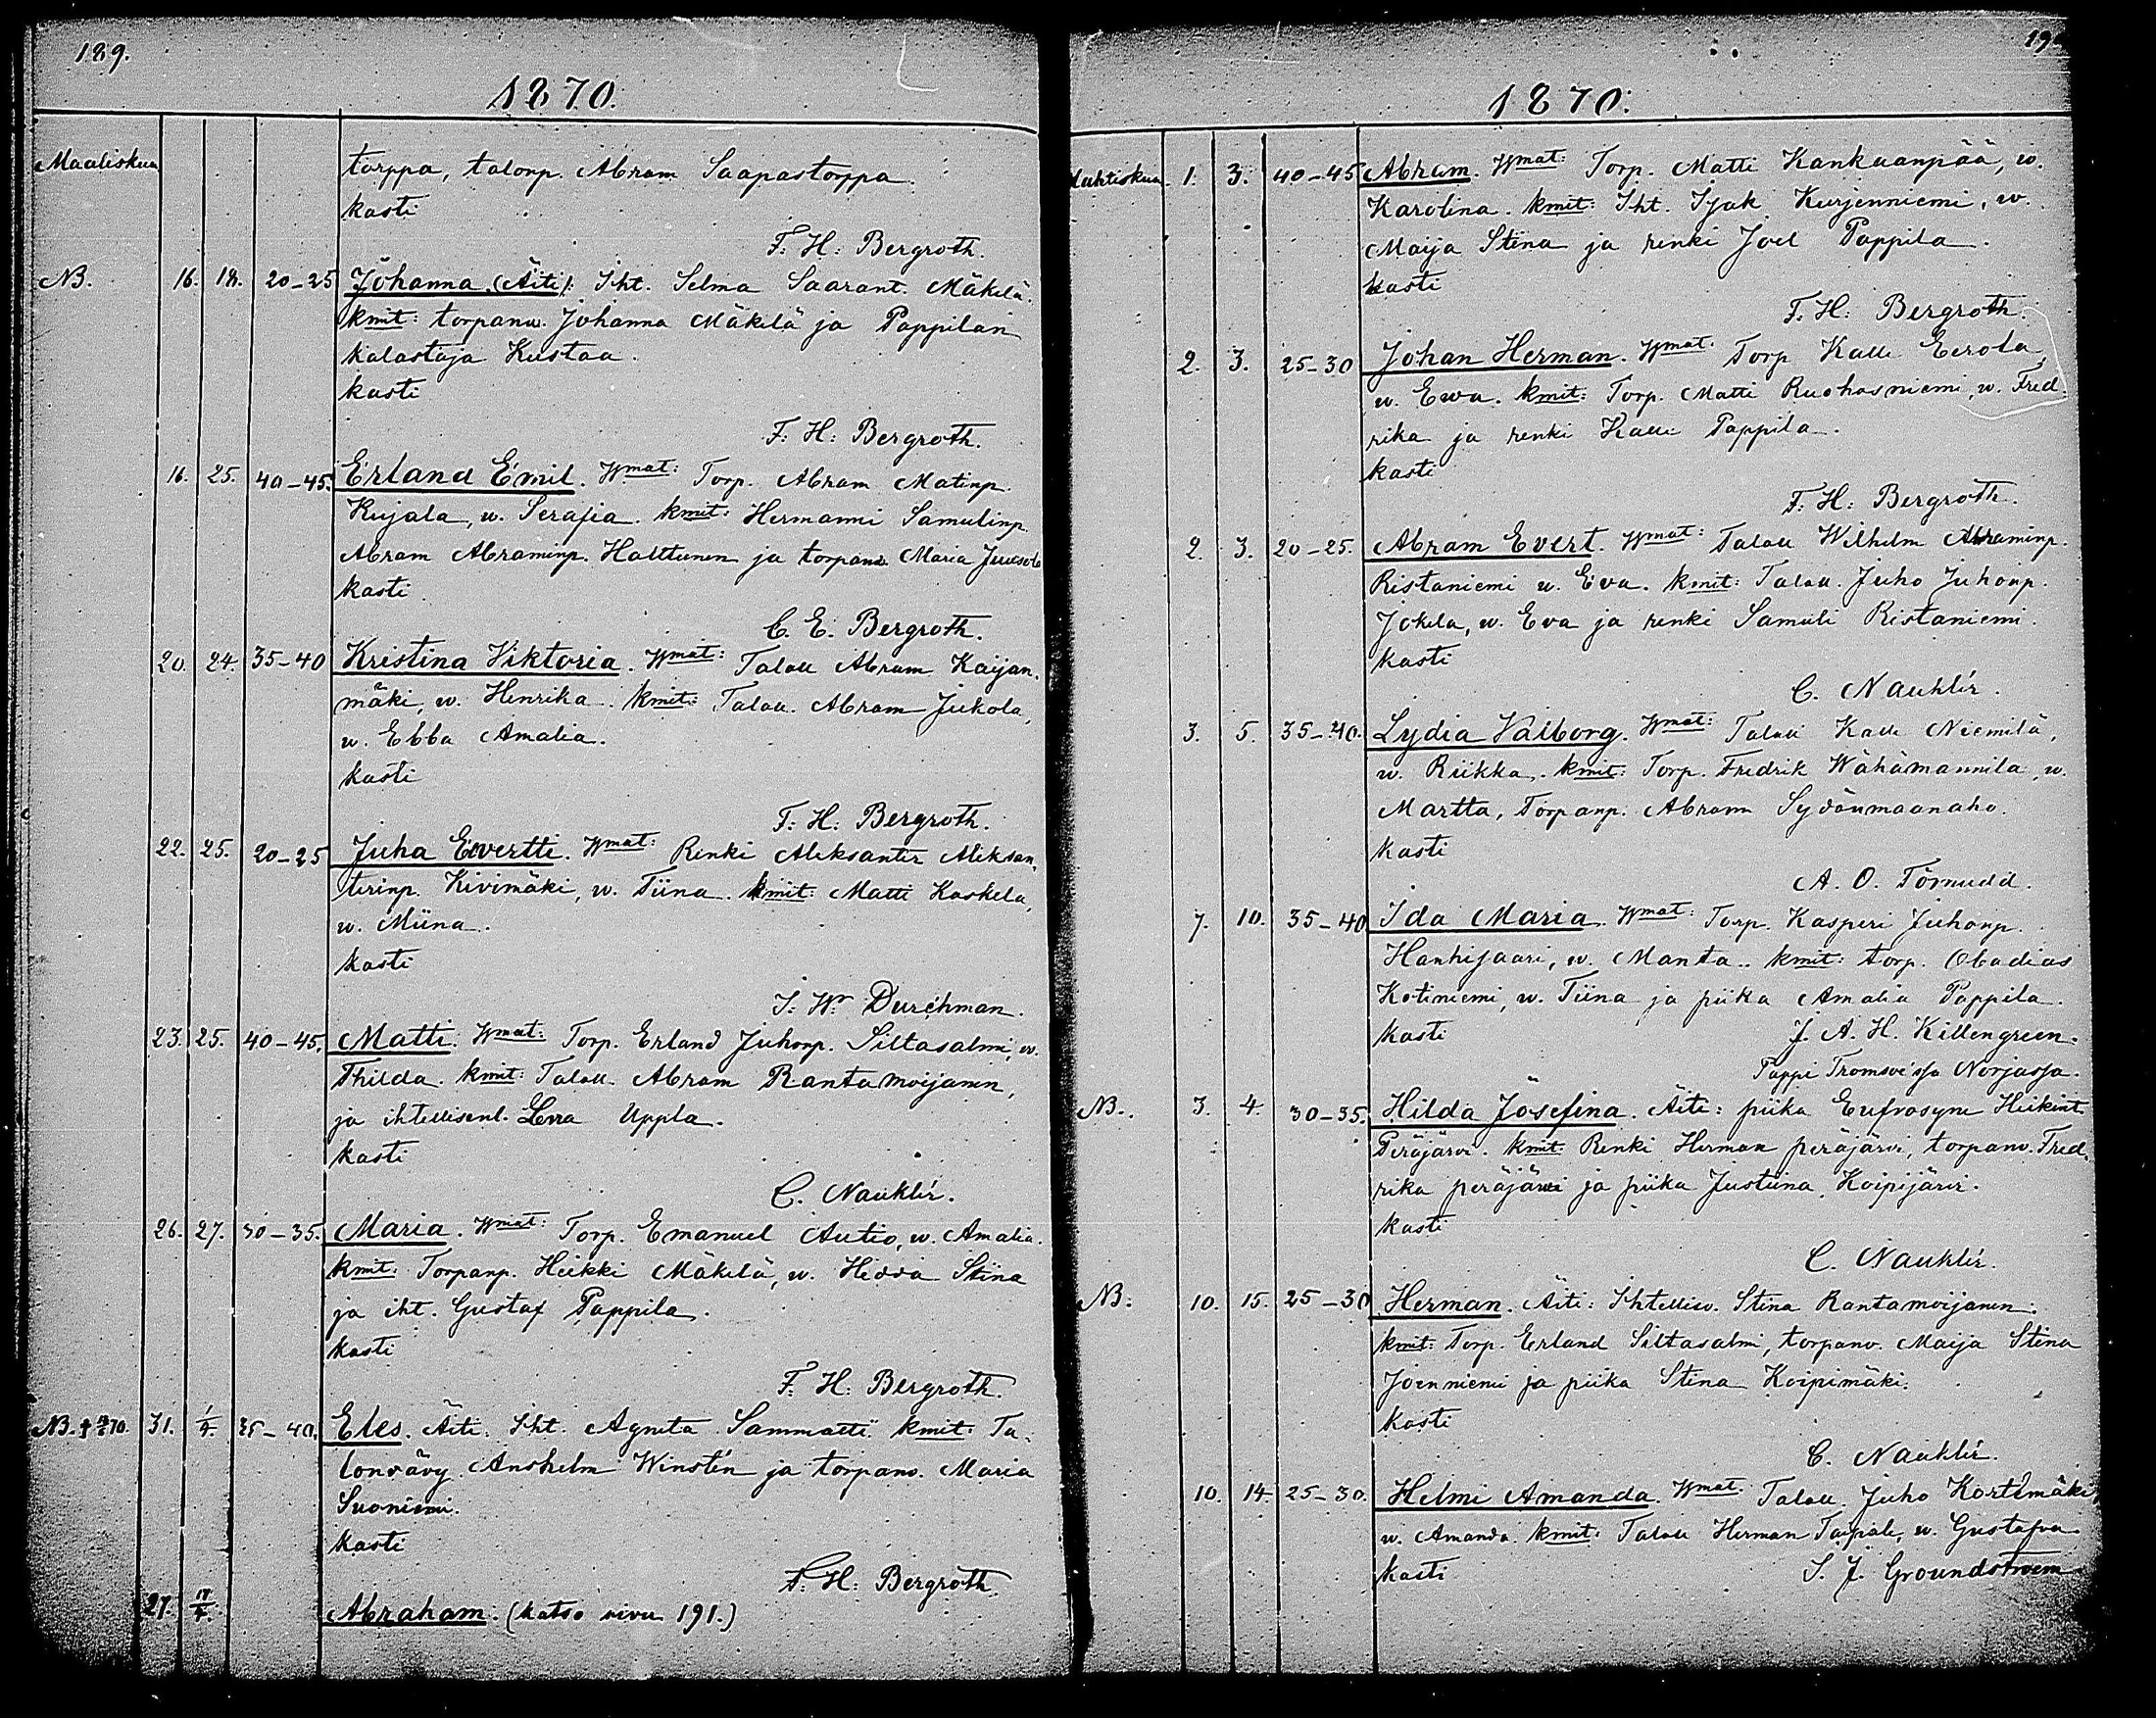 189.
1870.
Maaliskuu torppa, talonp. Abram Saapastorppa.
kasti
F. H. Bergroth.
NB. 16. 18. 20-25 Johanna. (Äiti): Iht. Selma Saarant. Mäkelä.
kmit: torpanw. Johanna Mäkelä ja Pappilan
kalastaja Kustaa.
kasti
F. H. Bergroth.
16. 25. 40-45. Erland Emil. Wmat: Torp. Abram Matinp.
Kujala, w. Serafia. kmit: Hermanni Samulinp.
Abram Abraminp. Halttunen ja torpanw. Maria Juusola
kasti
C. E. Bergroth.
20. 24. 35-40 Kristina Viktoria. Wmat: Talall Abram Kaijan-
mäki, w. Henrika. kmit: Talall. Abram Jukola,
w. Ebba Amalia.
kasti
F. H. Bergroth.
22. 25. 20-25 Juha Evertti. Wmat: Renki Aleksanter Aleksan-
terinp. Kivimäki, w. Tiina. kmit: Matti Koskela,
w. Miina.
kasti
I. W. Durchman.
23. 25. 40-45. Matti. Wmat: Torp. Erland Juhonp. Siltasalmi, w.
Thilda. kmit: Talall. Abram Rantamoijanen,
ja ihtellisenl. Leena Uppla.
kasti
C. Nauklér.
26. 27. 30-35. Maria. Wmat: Torp. Emanuel Autio, w. Amalia.
kmit: Torpanp. Heikki Mäkelä, w. Hedda Stina
ja iht. Gustaf Pappila.
kasti
F. H. Bergroth.
NB. 31. 1/4. 35-40. Eles. Äiti: Iht. Agneta Sammatti kmit: Ta-
lonvävy Anshelm Winstén ja torpanw. Maria
Suoniemi.
kasti
F. H. Bergroth.
27. 17/4. Abraham. (katso sivu 191.)
1870.
Huhtiskuu. 1. 3. 40-45 Abram. Wmat: Torp. Matti Kankaanpää, w.
Karolina. kmit: Iht. Isak Kurjenniemi, w.
Maija Stina ja renki Joel Pappila.
kasti
F. H. Bergroth.
2. 3. 25-30 Johan Herman. Wmat: Torp Kalle Eerola,
w. Ewa. kmit: Torp. Matti Ruohosniemi, w. Fred-
rika ja renki Kalle Pappila.
kasti
F. H. Bergroth.
2. 3. 20-25. Abram Evert. Wmat: Talall Wilhelm Abraminp.
Ristaniemi w. Eva. kmit: Talall. Juho Juhonp.
Jokela, w. Eva ja renki Samuli Ristaniemi.
kasti
C. Nauklér.
3. 5. 35-40. Lydia Valborg. Wmat: Talall Kalle Niemilä,
w. Riikka. kmit: Torp. Fredrik Wähämannila, w.
Martta, Torpanp. Abram Sydänmaanaho.
kasti
A. O. Törnudd.
7. 10. 35-40 Ida Maria. Wmat: Torp. Kasperi Juhonp.
Hanhisaari, w. Manta. kmit: torp. Obadias
Kotiniemi, w. Tiina ja piika Amalia Pappila.
kasti J. A. H. Killengreen.
Pappi Tromsöe'ssa Norjassa.
NB. 3. 4. 30-35. Hilda Josefina. Äiti: piika Eufrosyne Heikint.
Peräjärvi. kmit: Renki Herman peräjärvi, torpanw. Fred-
rika peräjärvi ja piika Justiina Koipijärvi.
kasti
C. Nauklér.
NB. 10. 15. 25-30 Herman. Äiti: Ihtellisw. Stina Rantamoijanen.
kmit: Torp. Erland Siltasalmi, torpanw. Maija Stina
Joenniemi ja piika Stina Koipimäki.
kasti
C. Nauklér.
10. 14. 25-30. Helmi Amanda. Wmat. Talall. Juho Kortemäki
w. Amanda. kmit: Talall Herman Taipale, w. Gustafva
kasti I. J. Groundstroem